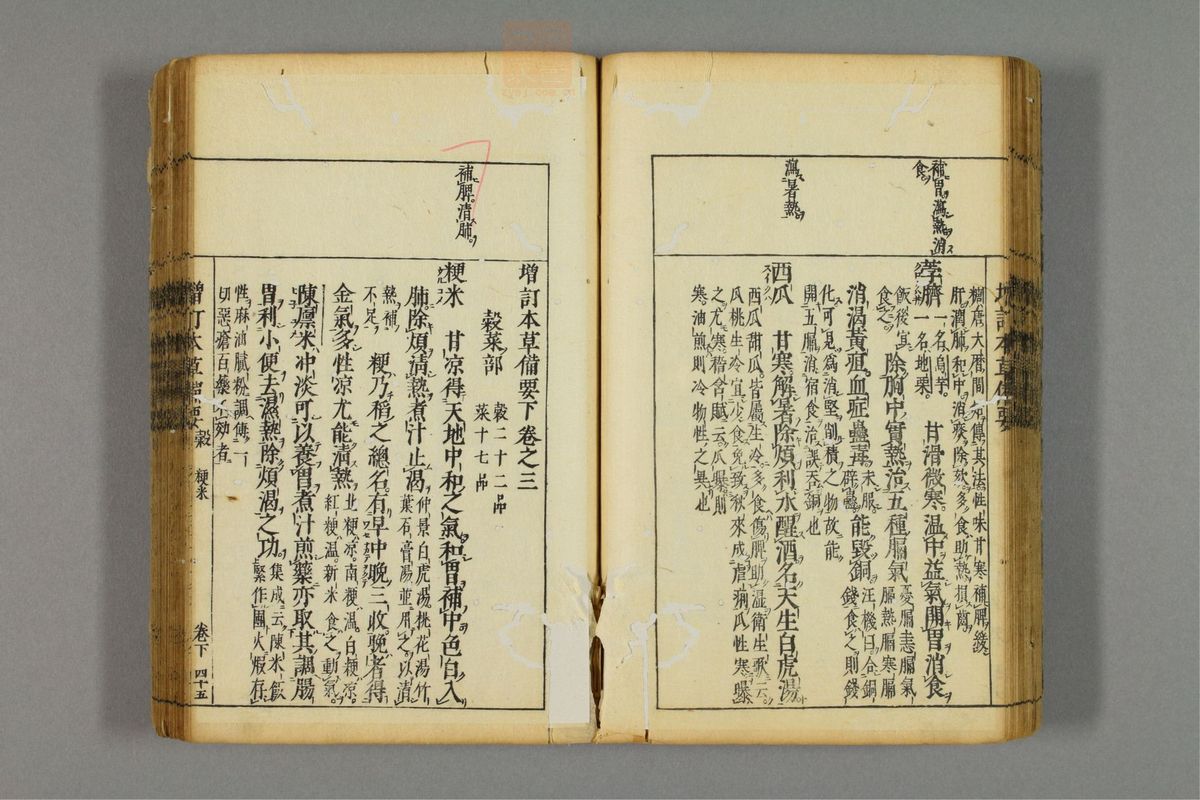 補胃瀉熱消
食
瀉暑熱
糖唐大曆間
肝潤肺和中消痰除
一名烏芋
荸臍 甘滑微寒温中益氣開胃消食
一名地栗
飯後 除胸中實熱治五種膈氣
食之
憂膈恚膈氣
膈熱膈寒膈
消渴黃疸血症蠱毒
未服
辟蠱
能毀銅
汪機曰合銅
錢食之則錢
化可見爲消堅削積之物故能
開五膈消宿食治誤吞銅也
西瓜 甘寒解暑除煩利水醒酒名天生白虎湯
西瓜甜瓜皆屬生冷多食傷脾助濕衛生歌云
瓜桃生冷宜少食免致秋來成瘧痢瓜性寒曝
之尤寒稽含賦云瓜曝則
寒油煎則冷物性之異也
補脾清肺
增訂本草備要下卷之三
穀菜部
穀二十二品
菜十七品
粳米 甘凉得天地中和之氣和胃補中色白入
肺除煩清熱煮汁止渴
仲景白虎湯桃花湯竹
葉石膏湯並用之以清
熱補
不足
粳乃稻之總名有早中晚三收晚者得
金氣多性凉尤能清熱
北粳凉南粳温白粳凉
紅粳温新米食之動氣
陳廩米冲淡可以養胃煮汁煎藥亦取其調腸
胃利小便去濕熱除煩渴之功
集成云陳米飯
緊作團火煆存
性麻油膩粉調傅一
切惡瘡百藥不效者
增訂本草備要 穀 粳米 卷下 四十五